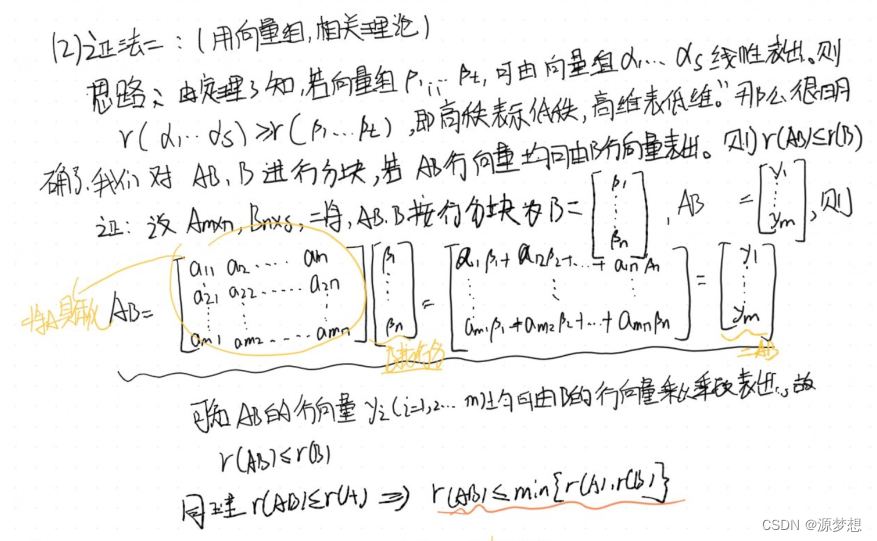 (2)证法二:(用向量组,相关理论)
思路:由定理3知,若向量组β1…βt,可由向量组α1…αs线性表出。则
r(α1…αs)≥r(β1…βt),即高秩表示低秩,高维表低维。"那么很明
确了.我们对AB,B进行分块,若AB行向量均可由B行向量表出。则r(AB)≤r(B)
证:设Am×n,Bn×s,将,AB.B按行分块为B=[β1 ⋮ βn],AB=[γ1 ⋮ γm],则
AB=[a11 a12 ⋯ a1n; a21 a22 ⋯ a2n; ⋮; am1 am2 ⋯ amn][β1 ⋮ βn]=[a11β1+a12β2+…+a1nβn; ⋮; am1β1+am2β2+…+amnβn]=[γ1 ⋮ γm]
将A具体化
B按行分
=AB
可知AB的行向量γi(i=1,2…m)均可由B的行向量表出,故
r(AB)≤r(B)
同理r(AB)≤r(A)⇒r(AB)≤min{r(A),r(B)}
CSDN @源梦想